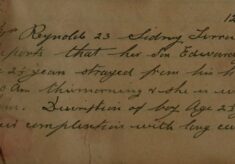 12
Reynolds 23 Sidney Terrace
reports that her Son Edward
2½ years strayed from his h
10 Am this morning & she is un
Description of boy Age 2½
complexion with long cu